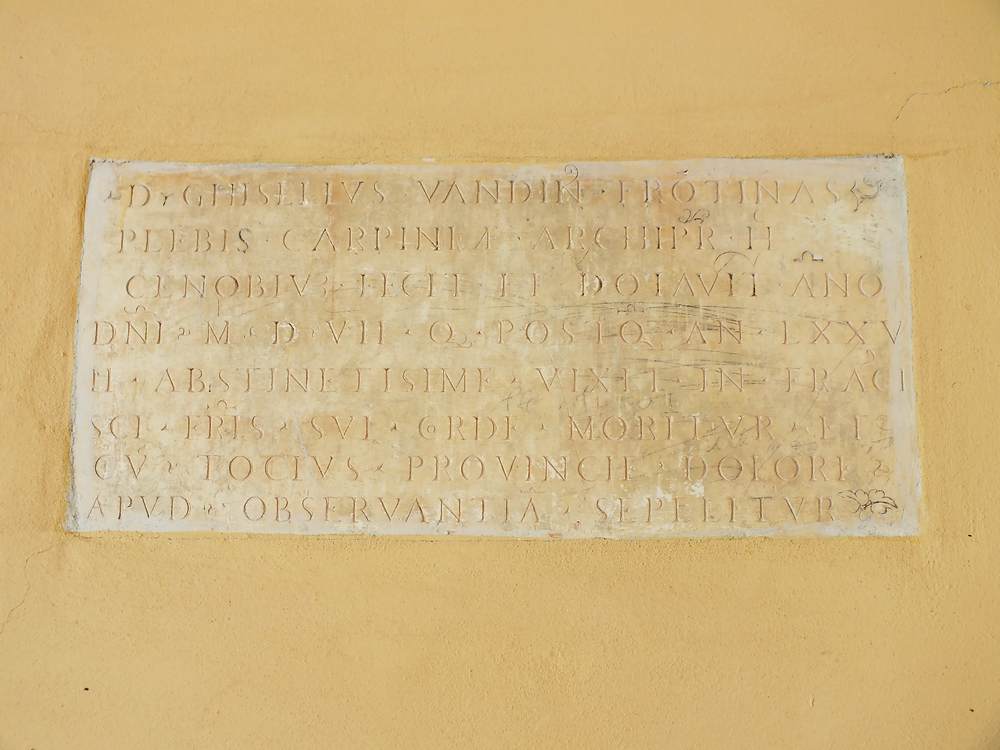 D · GHISELLVS · VANDIN · FROTINAS
PLEBIS · CARPINEÆ · ARCHIPR · H
CENOBIV3 · FECIT · ET · DOTAVIT · ANO
DNI · M · D · VII · Q · POSTQ · AN · LXXV
II · ABSTINETISIME · VIXIT · IN · FRACI
SCI · FRIS · SVI · CORDE · MORITVR · ET
CV · TOCIVS · PROVINCIE · DOLORE ·
APVD · OBSERVANTIA · SEPELITVR